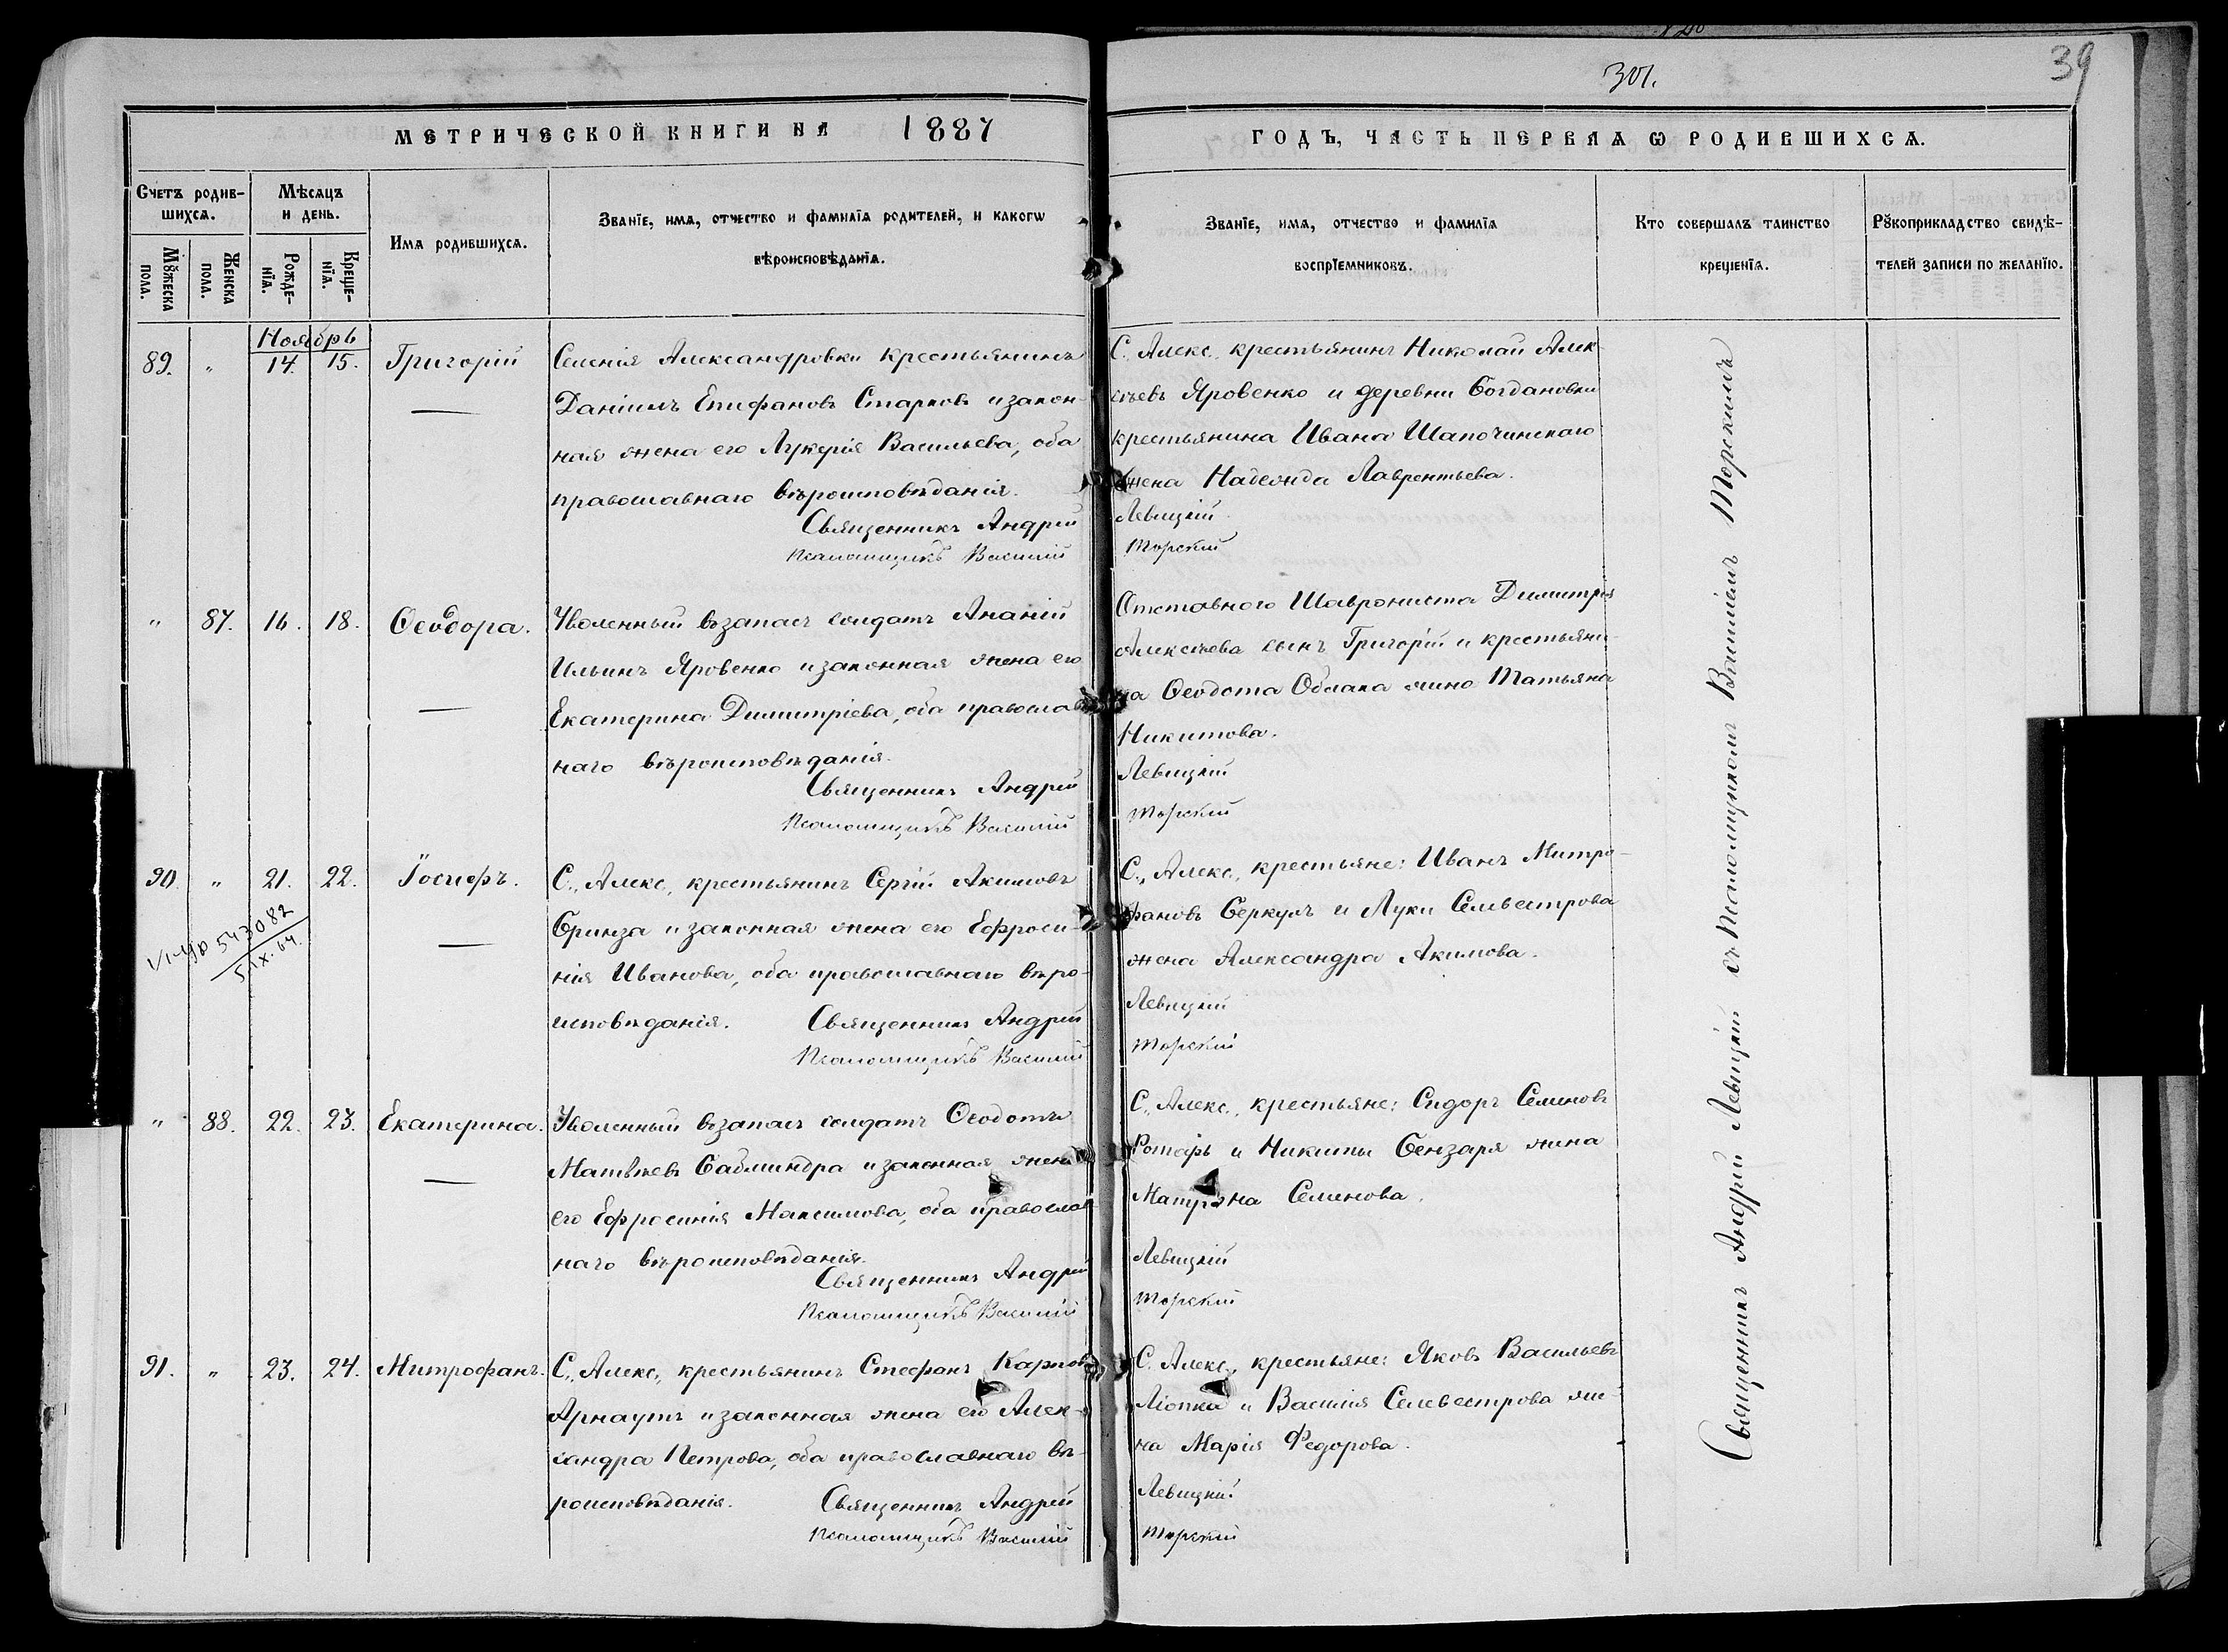 301.
39
МЕТРИЧЕСКОЙ КНИГИ НА 1887
ГОДЪ, ЧАСТЬ ПЕРВАЯ Ѡ РОДИВШИХСЯ.
Счетъ родив-
шихся.
Мѣсяцъ
и день.
Имя родившихся.
Званїе, имя, отчество и фамилїя родителей, и какогѡ
вѣроисповѣданїя.
Званїе, имя, отчество и фамилїя
воспрїемниковъ.
Кто совершалъ таинство
крещенїя.
Рꙋкоприкладство свидѣ-
телей записи по желанїю.
Мꙋжеска
пола.
Женска
пола.
Рожде-
нїя.
Креще-
нїя.
Ноябрь
89. " 14. 15. Григорій
Селенія Александровки крестьянинъ
Даніилъ Епифановъ Старковъ и закон-
ная жена его Лукерія Васильева, оба
православнаго вѣроисповѣданія.
Священникъ Андрей
Псаломщикъ Василій
С. Алекс. крестьянинъ Николай Алек-
сѣевъ Яровенко и деревни Богдановки
крестьянина Ивана Шапочинскаго
жена Надежда Лаврентьева.
Левицкій
Торскій
" 87. 16. 18. Ѳеодора.
Уволенный въ запасъ солдатъ Ананій
Ильинъ Яровенко и законная жена его
Екатерина Димитріева, оба православ-
наго вѣроисповѣданія.
Священникъ Андрей
Псаломщикъ Василій
Отставного Димитрія
Алексѣева сынъ Григорій и крестьяни-
на Ѳеодота жина Татьяна
Никитова.
Левицкій
Торскій
90. " 21. 22. Іосифъ.
543082
5.IX.64.
С., Алекс., крестьянинъ Сергій Акимовъ
Бринза и законная жена его Ефроси-
нія Иванова, оба православнаго вѣро-
исповѣданія. Священникъ Андрей
Псаломщикъ Василій
С., Алекс., крестьяне: Иванъ Митро-
фановъ Беркулъ и Луки Селвестрова
жена Александра Акимова.
Левицкій
Торскій
" 88. 22. 23. Екатерина.
Уволенный въ запасъ солдатъ Ѳеодотъ
Матвѣевъ и законная жена
его Ефросинія Максимова, оба православ-
наго вѣроисповѣданія.
Священникъ Андрей
Псаломщикъ Василій
С., Алекс., крестьяне: Сидоръ Семеновъ
Ротарь и Никиты Бензаря жина
Матрона Семенова.
Левицкій
Торскій
91. " 23. 24. Митрофанъ.
С., Алекс., крестьянинъ Стефанъ Карповъ
Арнаутъ и законная жена его Алек-
сандра Петрова, оба православнаго вѣ-
роисповѣданія. Священникъ Андрей
Псаломщикъ Василій
С. Алекс., крестьяне: Яковъ Васильевъ
и Василія Селевестрова жи-
на Марія Федорова.
Левицкій
Торскій
Священникъ Андрей Левицкій съ Псаломщикомъ Василіемъ Торскимъ